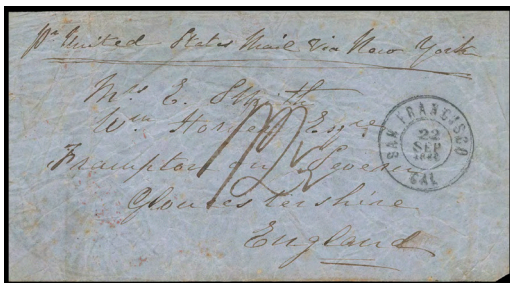 Per United States Mail via New York
Mrs. E. Smith
Wm Esqre
Frampton on Severn
Gloucestershire
England
SAN FRANCISCO
22
SEP
CAL